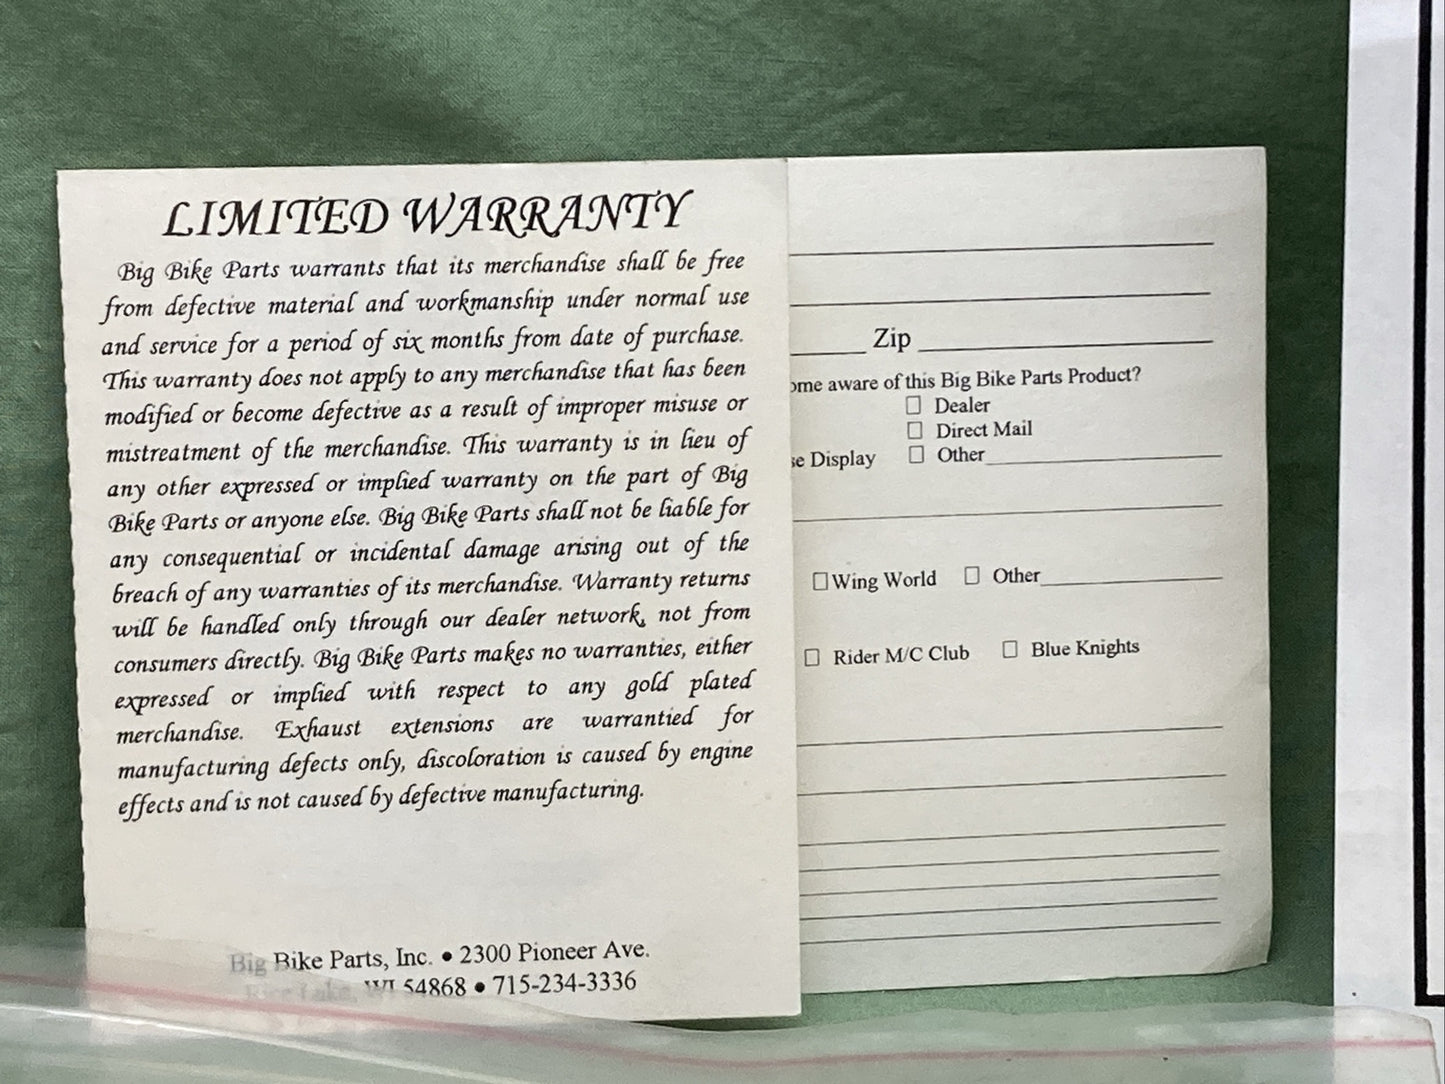 LIMITED WARRANTY
Big Bike Parts warrants that its merchandise shall be free
from defective material and workmanship under normal use
and service for a period of six months from date of purchase.
This warranty does not apply to any merchandise that has been
modified or become defective as a result of improper misuse or
mistreatment of the merchandise. This warranty is in lieu of
any other expressed or implied warranty on the part of Big
Bike Parts or anyone else. Big Bike Parts shall not be liable for
any consequential or incidental damage arising out of the
breach of any warranties of its merchandise. Warranty returns
will be handled only through our dealer network, not from
consumers directly. Big Bike Parts makes no warranties, either
expressed or implied with respect to any gold plated
merchandise. Exhaust extensions are warrantied for
manufacturing defects only, discoloration is caused by engine
effects and is not caused by defective manufacturing.
Big Bike Parts, Inc. • 2300 Pioneer Ave.
Rice Lake, WI 54868 • 715-234-3336
Zip
ome aware of this Big Bike Parts Product?
☐ Dealer
☐ Direct Mail
se Display ☐ Other
☐ Wing World ☐ Other
☐ Rider M/C Club ☐ Blue Knights